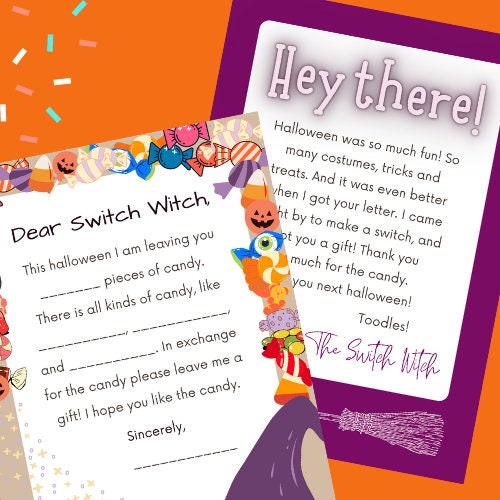 Dear Switch Witch,
This halloween I am leaving you
________ pieces of candy.
There is all kinds of candy, like
___________, ____________,
and ___________. In exchange
for the candy please leave me a
gift! I hope you like the candy.
Sincerely,
_____________
Hey there!
Halloween was so much fun! So
many costumes, tricks and
treats. And it was even better
when I got your letter. I came
by to make a switch, and
you a gift! Thank you
much for the candy.
you next halloween!
Toodles!
The Switch Witch